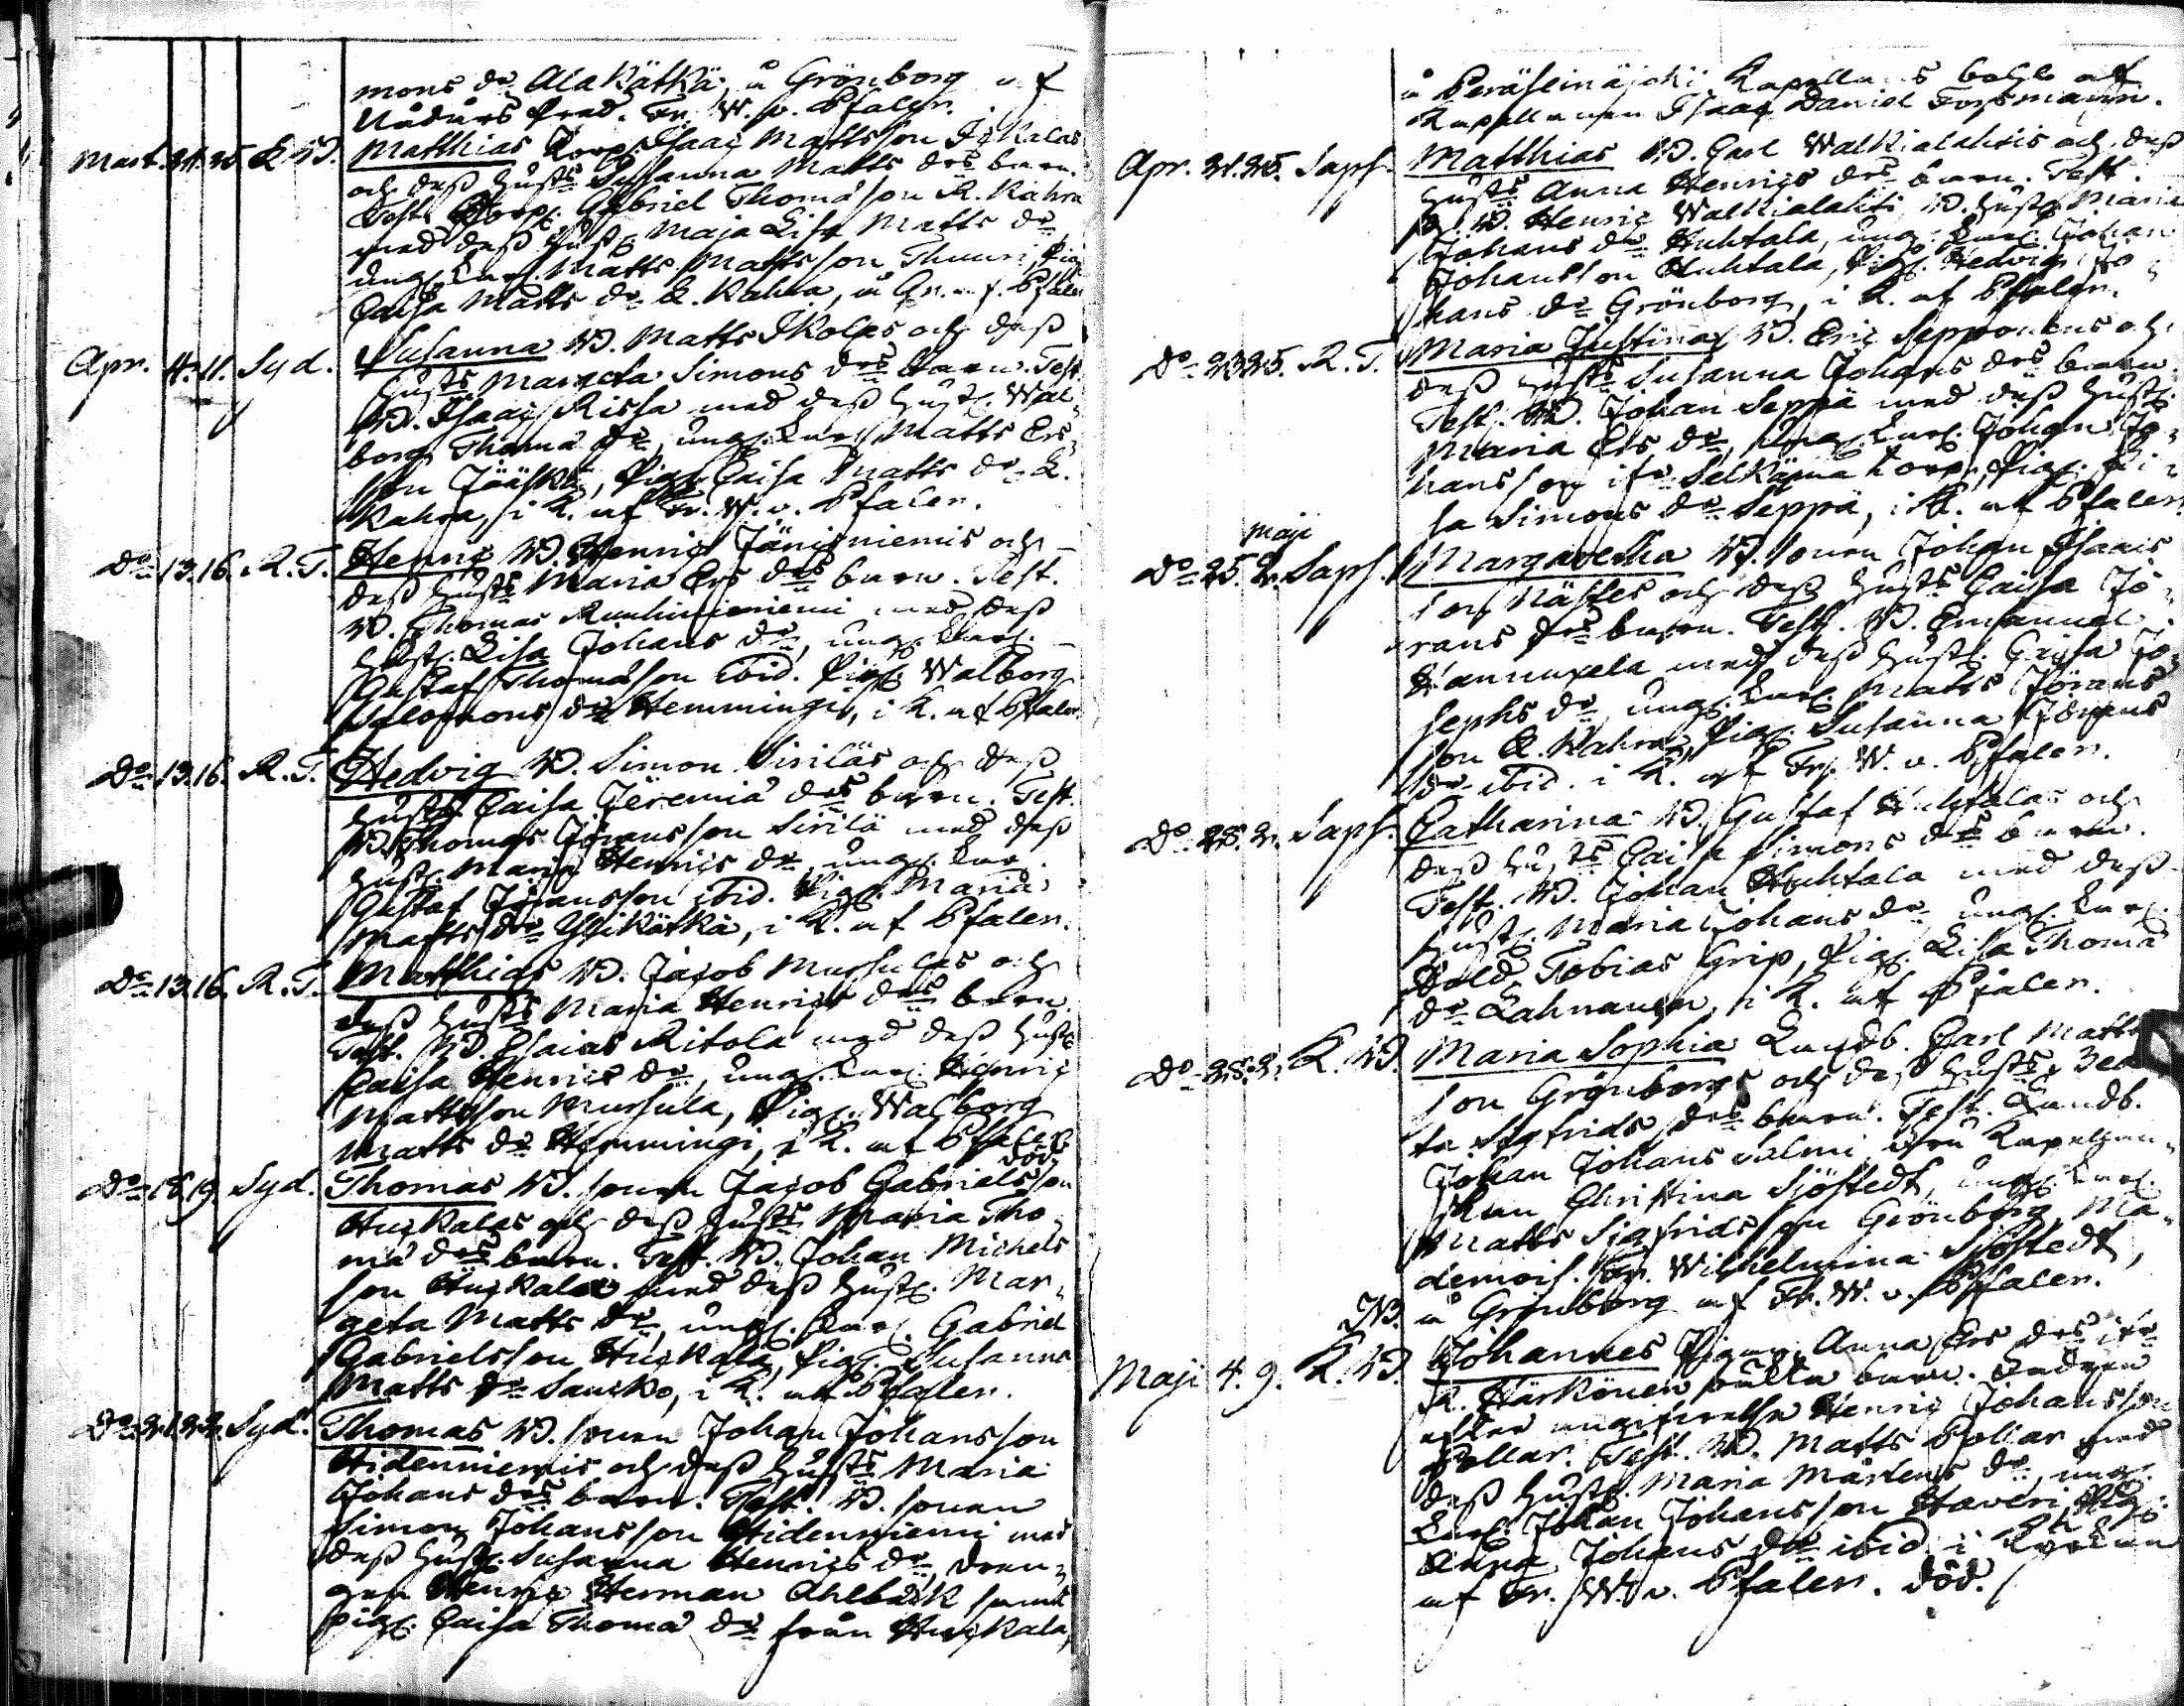 mons dr Alakätkä, å Grönborg af
Nådårs Pred. Fr. W. v. Pfaler.
Mart. 24. 25. L. W. Matthias Corp. Isaac Mattsson Iskalas
och dess hust:s Susanna Matts drs barn.
Test. Corp. Gabriel Thomasson R. Kahra
med dess hust. Maja Lisa Matts dr,
ung. Karl. Matts Mattsson Thuuri, Pig.
Caisa Matts dr L. Kahra, å Gr. af Pfaler
Apr. 4. 11. Syd. Susanna B. Matts Skolas och dess
hust:s Margeta Simons drs barn. Test.
B. Isaac Rissa med dess hust. Wal-
borg Thomae dr, ung. Karl Matts Ers-
son Jääskä, Pig. Caisa Matts dr L.
Kahra, i K. af Fr. W. v. Pfaler.
Do 13. 16. R. T. Henric B. Henric Jänisniemis och
dess hust:s Maria Ers drs barn. Test.
B. Thomas Ruuhiniemi med dess
hust. Lisa Johans dr, ung. Karl.
Gustaf Thomasson ibid. Pig. Walborg
Salomons dr Hemmingi, i K. af Pfaler.
Do 13. 16. R. T. Hedvig B. Simon Siriläs och dess
hust:s Caisa Jeremiae drs barn. Test.
B. Thomas Jöransson Sirilä med dess
hust. Maria Henrics dr, ung. Kar.
Gustaf Jöransson ibid. Pig. Maria
Matts dr Ylikätkä, i K. af Pfaler.
Do 13. 16. R. T. Matthias B. Jacob Mursulas och
dess hust:s Maria Henrics drs barn.
Test. B. Esaias Ritola med dess hust.
Caisa Henrics dr, ung. Karl. Henric
Mattsson Mursula, Pig. Walborg
Matts dr Hemmingi, i K. af Pfaler.
död.
Do 18. 19. Syd. Thomas B. sonen Jacob Gabrielsson
Huckalas och dess hust:s Maria Tho-
mae drs barn. Test. B. Johan Michels
son Huckala med dess hust. Mar-
geta Matts dr, ung. Karl. Gabriel
Gabrielsson Huckala, Pig. Susanna
Matts dr Saucko, i K. af Pfaler.
Do 21. 22. Syd. Thomas B. sonen Johan Johansson
Hidenniemis och dess hust:s Maria
Johans drs barn. Test. B. sonen
Simon Johansson Hidenniemi med
dess hust. Susanna Henrics dr, dren-
gen Henric Herman Ahlbäck samt
pig. Caisa Thomae dr från Huckala,
å Peräseinäjoki Kapellans bohl af
Kapellanen Isaac Daniel Forsmann.
Apr. 21. 25. Saps. Matthias B. Carl Walkialahtis och dess
hust:s Anna Henrics drs barn. Test.
B. Henric Walkialahti, B. hust. Maria
Johans dr Huhtala, ung. Karl. Johan
Johansson Huhtala, Pig. Hedvig Jo-
hans dr Grönborg, i K. af Pfaler.
Do 23. 25. R. T. Maria Justina B. Eric Sepponens och
dess hust:s Susanna Johans drs barn.
Test. B. Johan Seppä med dess hust.
Maria Ers dr, ung. Karl. Johan Jo-
hansson ifr. Selkämä torp, Pig.
sa Simons dr Seppä, i K. af Pfaler
Maji
Do 25. 2. Saps. Margaretha B. sonen Johan Isaacs
son Nässes och dess hust:s Caisa Jö-
rans drs barn. Test. B. Emanuel
med dess hust. Caisa Jo-
sephs dr, ung. Karl. Matts Jörans
son L. Kahra, Pig. Susanna Jörans
dr ibid. i K. af Fr. W. v. Pfaler.
Do 28. 2. Saps. Catharina B. Gustaf Huhtalas och
dess hust:s Caisa Simons drs barn.
Test. B. Johan Huhtala med dess
hust. Maria Johans dr, ung. Karl.
Sold. Tobias Grip, Pig. Lisa Thomae
dr Lahnanen, i K. af Pfaler.
Do 28. 2. K. W. Maria Sophia Landb. Carl Matts
son Grönborgs och dess hust:s Bea
ta Sigfrids drs barn. Test. Landb.
Johan Johans Salmi, Fru Kapellan-
skan Christina Sjöstedt, ung. Karl.
Matts Sigfridsson Grönborg, Ma-
demois. Wilhelmina Sjöstedt,
NB. å Grönborg af Fr. W. v. Pfaler.
Maji 4. 9. K. W. Johannes Pigan Anna Ers drs ifr.
K. Härkönen oäkta barn. Fadren
efter angifvelse Henric Johansson
Pollar. Test. B. Matts Pollar med
dess hust. Maria Mårtens dr, ung.
Karl. Johan Johansson Haveri, Pig.
Anna Johans dr ibid. i Kyrkan
af Fr. W. v. Pfaler. död.